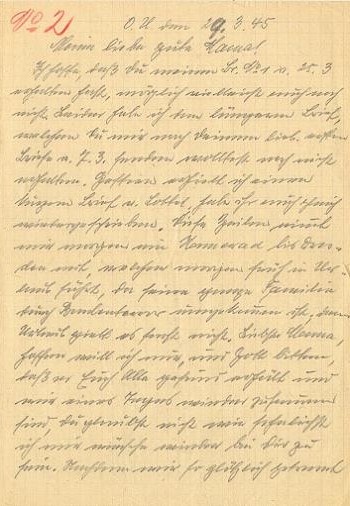 No 2
O.U. den 29.3.45
Meine liebe gute Hanna!
Ich hoffe, daß Du meinen Br. No 1 v. 25.3
erhalten hast, möglich vielleicht auch noch
nicht. Leider habe ich den längeren Brief,
welchen Du mir nach Deinem lieb. ersten
Briefe v. 7.3. senden wolltest noch nicht
erhalten. Gestern erhielt ich einen
kurzen Brief v. Lottel, habe ihr auch gleich
wiedergeschrieben. Diese Zeilen nimmt
mir morgen ein Kamerad bis Dres-
den mit, welcher morgen früh in Ur-
laub fährt, da seine ganze Familie
durch umgekommen ist, denn
Urlaub giebt es sonst nicht. Liebste Hanna,
hoffen will ich nur, und Gott bitten,
daß er Euch Alle gesund erhält und
wir eines Tages wieder zusammen
sind, Du glaubst nicht wie sehnlichst
ich mir wünsche wieder bei Dir zu
sein. Nachdem wir so plötzlich getrennt